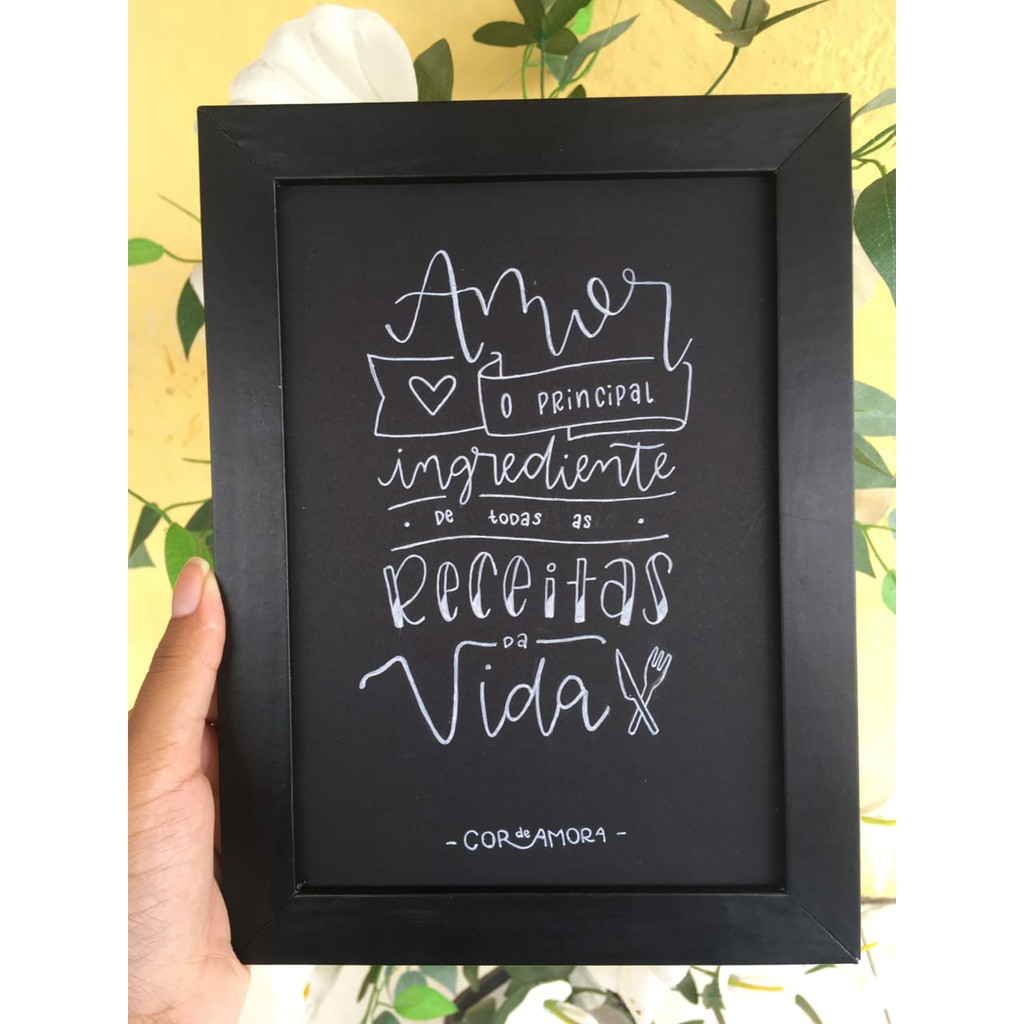 Amor
O PRINCIPAL
ingrediente
DE TODAS AS
RECEITAS
DA
Vida
- COR de AMORA -